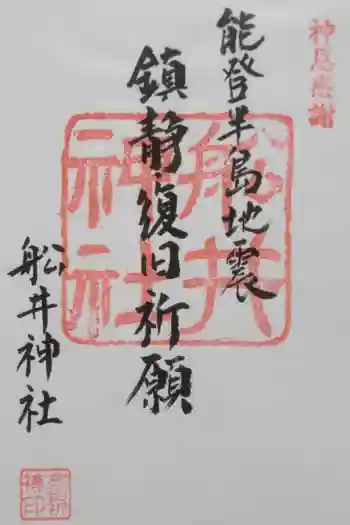 神恩感謝
能登半島地震
鎮静・復旧祈願
船井神社
船井神社